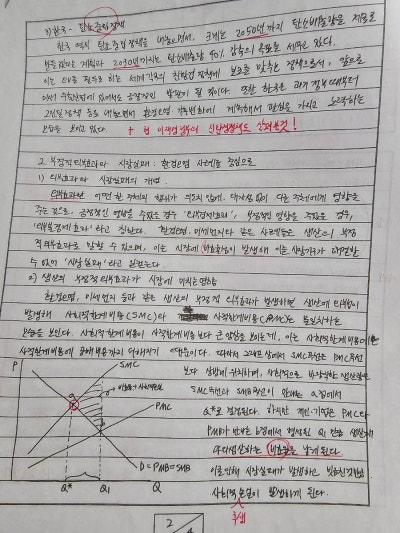 3) 한국 - 탄소중립정책
한국 역시 탄소중립 정책을 내놓으면서, 크게는 2050년까지 탄소배출량을 제로로
2030년까지는 탄소배출량 40% 감축의 목표를 세우고 있다.
이는 EU를 필두로 하는 세계 각국의 친환경 정책에 보조를 맞추는 정책으로서, 앞으로
있어서도 긍정적인 발판이 될 것이다. 또한 한국은 과거 정부때부터
환경오염, 기후변화에 계속해서 관심을 가지고 노력하는
모습을 보이고 있다. + 현 이재명 정부의 탄소정책도 살펴볼것!
2. 부정적 외부효과와 시장실패: 환경오염 사례를 중심으로
1) 외부효과와 시장실패의 개념
외부효과란 어떠한 한 주체의 행위가 의도치 않게, 대가성 없이 다른 주체에게 영향을
주는 것으로, 긍정적인 영향을 주었을 경우 '외부경제효과', 부정적인 영향을 주었을 경우,
'외부불경제효과'라고 칭한다. 환경오염, 미세먼지와 같은 사례들은 생산의 부정
적 외부효과로 말할 수 있으며, 이는 시장에 비효율성이 발생해 이른 시장기구가 해결할
수 없어 '시장실패'라고 일컫는다.
2) 생산의 부정적 외부효과가 시장에 미치는 영향
환경오염, 미세먼지 등과 같은 생산의 부정적 외부효과가 발생하면 생산에 외부성이
발생해 사회적한계비용(SMC)과 사적한계비용(PMC)은 불일치하는
모습을 보인다. 사회적한계비용이 사적한계비용보다 큰 양상을 보이는데, 이는 사회적한계비용이
사적한계비용에 피해비용까지 더해지기 때문이다. 따라서 그래프상에서 SMC곡선은 PMC곡선
보다 상방에 위치하며, 사회적으로 바람직한 생산량은
SMC곡선과 SMB곡선이 만나는 a점에서
Q*로 결정된다. 하지만 개인·기업은 PMC와
PMB가 만나는 b점에서 결정된 Q₁ 만큼 생산해
과다생산하는 비효율을 낳게 된다.
이로 인해 시장실패가 발생하고 빗금친것만큼
사회적손실이 발생하게 된다.
후생
P
SMC
PMC
a
b
D=PMB=SMB
Q* Q₁ Q
2/4